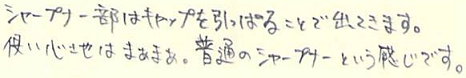 シャープナー部はキャップを引っぱることで出てきます。
使い心地はまあまあ。普通のシャープナーという感じです。